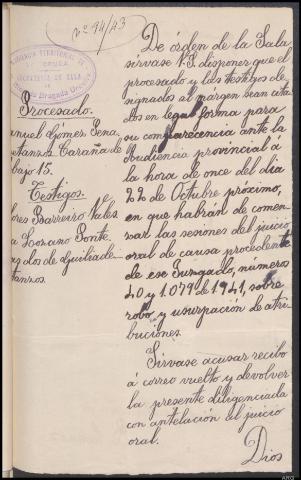 Nº 94/43
AUDIENCIA TERRITORIAL DE
SECRETARIA DE SALA
Procesado.
anuel Gómez Pena
etanzos Caraña de
bajo 15.
Testigos.
ores Barreiro Vales
a Lozano Ponte.
as dos de Guiliade-
tanzos.
De órden de la Sala
sírvase V.I. disponer que el
procesado y los testigos de-
signados al margen sean cita-
dos en legal forma para
su comparecencia ante la
Audiencia provincial á
la hora de once del dia
22 de Octubre próximo,
en que habrán de comen-
zar las sesiones del juicio
oral de causa procedente
de ese Juzgado, números
40 y 1.079 de 1941, sobre
robo y usurpación de atri-
buciones.
Sírvase acusar recibo
á correo vuelto y devolver
la presente diligenciada
con antelación al juicio
oral.
Dios
ARG